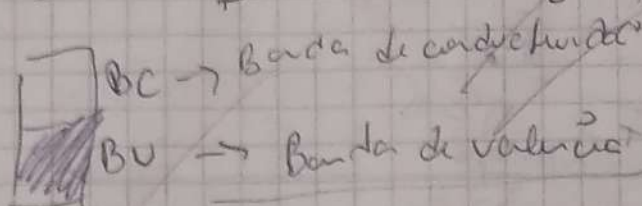 BC → Banda de conductividad
BV → Banda de valencia